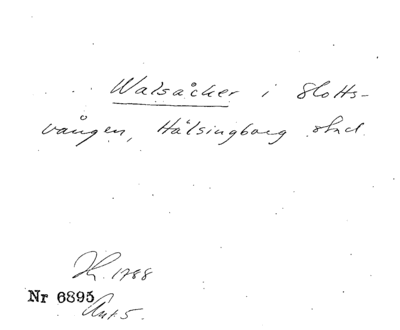 Walsåcker i Slotts-
vången, Hälsingborg stad
H. 1788
Nr 6895
Ant. 5.